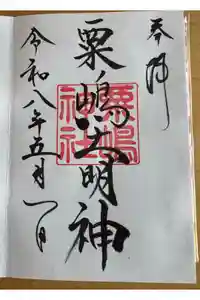 奉拝
粟嶋大明神
粟嶋神社
令和八年五月一日